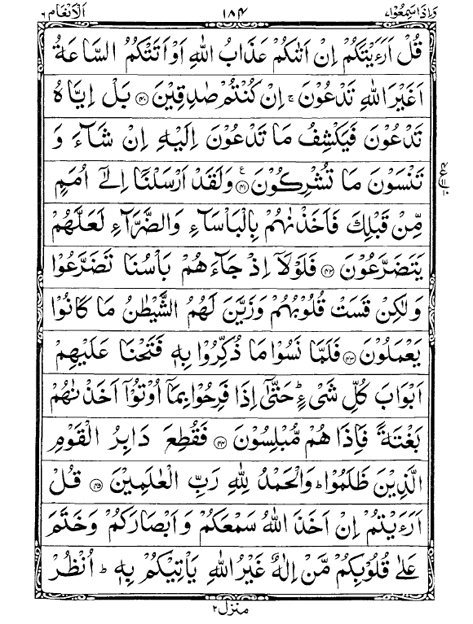 وَاِذَا سَمِعُوْا ٧ ١٨٤ اَلْاَنْعَام ٦
قُلْ اَرَءَيْتَكُمْ اِنْ اَتٰىكُمْ عَذَابُ اللّٰهِ اَوْ اَتَتْكُمُ السَّاعَةُ
اَغَيْرَ اللّٰهِ تَدْعُوْنَ ۚ اِنْ كُنْتُمْ صٰدِقِيْنَ ﴿۴۰﴾ بَلْ اِيَّاهُ
تَدْعُوْنَ فَيَكْشِفُ مَا تَدْعُوْنَ اِلَيْهِ اِنْ شَآءَ وَ
تَنْسَوْنَ مَا تُشْرِكُوْنَ ﴿۴۱﴾ وَلَقَدْ اَرْسَلْنَاۤ اِلٰۤى اُمَمٍ
مِّنْ قَبْلِكَ فَاَخَذْنٰهُمْ بِالْبَاْسَآءِ وَالضَّرَّآءِ لَعَلَّهُمْ
يَتَضَرَّعُوْنَ ﴿۴۲﴾ فَلَوْلَاۤ اِذْ جَآءَهُمْ بَاْسُنَا تَضَرَّعُوْا
وَلٰكِنْ قَسَتْ قُلُوْبُهُمْ وَزَيَّنَ لَهُمُ الشَّيْطٰنُ مَا كَانُوْا
يَعْمَلُوْنَ ﴿۴۳﴾ فَلَمَّا نَسُوْا مَا ذُكِّرُوْا بِهٖ فَتَحْنَا عَلَيْهِمْ
اَبْوَابَ كُلِّ شَيْءٍ ؕ حَتّٰۤى اِذَا فَرِحُوْا بِمَاۤ اُوْتُوْۤا اَخَذْنٰهُمْ
بَغْتَةً فَاِذَا هُمْ مُّبْلِسُوْنَ ﴿۴۴﴾ فَقُطِعَ دَابِرُ الْقَوْمِ
الَّذِيْنَ ظَلَمُوْا ؕ وَالْحَمْدُ لِلّٰهِ رَبِّ الْعٰلَمِيْنَ ﴿۴۵﴾ قُلْ
اَرَءَيْتُمْ اِنْ اَخَذَ اللّٰهُ سَمْعَكُمْ وَاَبْصَارَكُمْ وَخَتَمَ
عَلٰى قُلُوْبِكُمْ مَّنْ اِلٰهٌ غَيْرُ اللّٰهِ يَاْتِيْكُمْ بِهٖ ؕ اُنْظُرْ
منزل ٢